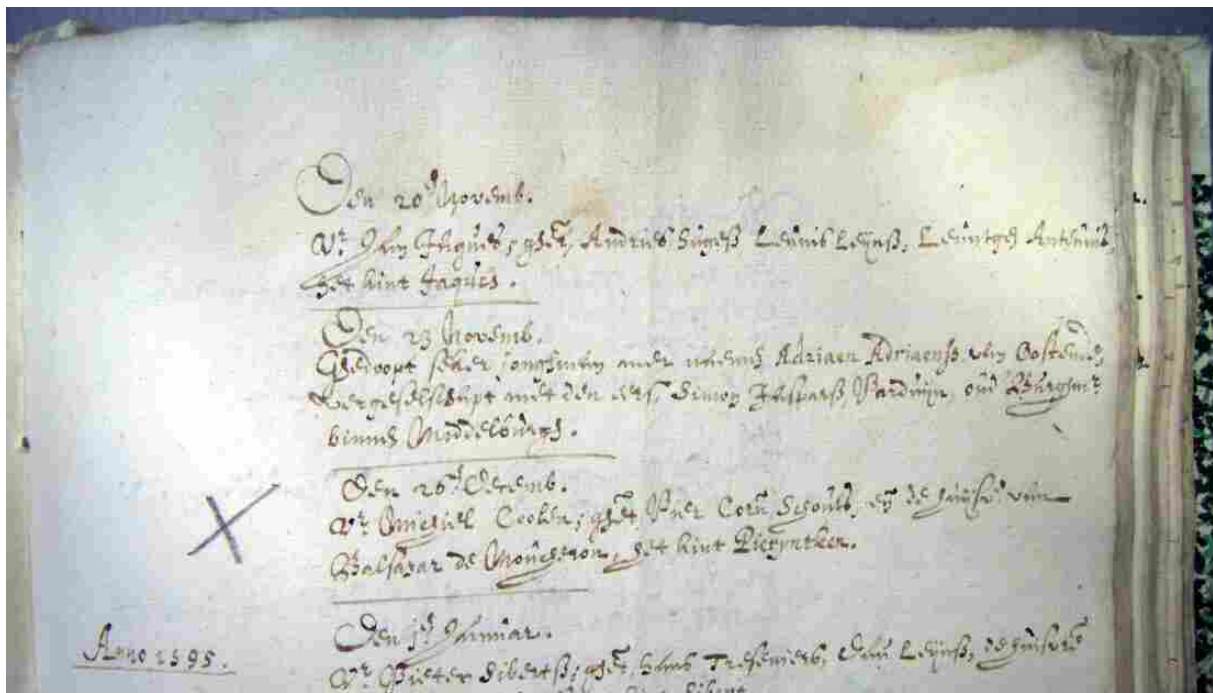 Den 20 Novemb.
Vr Jan Jaques, get, Andries Leunis Leynss, Leuntgen Anthunis,
het kint Jaques.
Den 23 Novemb.
Gedoopt seker jonghman met namen Adriaen Adriaenss van Oostende,
vergeselschapt met den eers, Simon Jasparss Parduijn, oud Burghmr
binnen Middelburgh.
Den 26 Decemb.
Vr Michiel Coolen, get Corn en de huisfr van
Balthasar de Moucheron, het kint Pierijntken.
Anno 1595.
Den 1 Januar.
Vr Pieter Sibertss, get, Hans Leynss, de huisvre